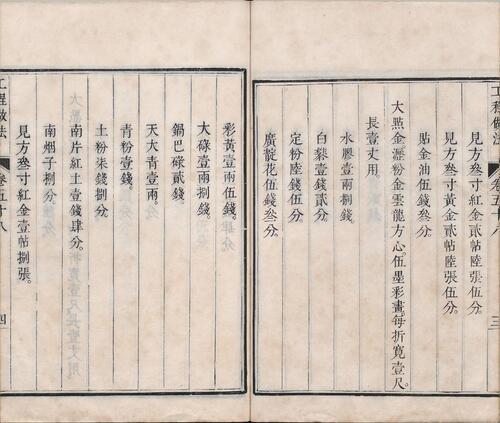 工程做法 卷五十八 三
見方叁寸紅金貳帖陸張伍分。
見方叁寸黃金貳帖陸張伍分。
貼金油伍錢叁分。
大㸃金瀝粉金雲龍方心。伍墨彩畫。每折寬壹尺。
長壹丈用。
水膠壹兩捌錢。
白礬壹錢貳分。
定粉陸錢伍分。
廣靛花伍錢叁分。
彩黃壹兩伍錢。
大碌壹兩捌錢。
鍋巴碌貳錢。
天大青壹兩。
青粉壹錢。
土粉柒錢捌分
南片紅土壹錢肆分。
南烟子捌分。
見方叁寸紅金壹帖捌張。
工程做法 卷五十八 四